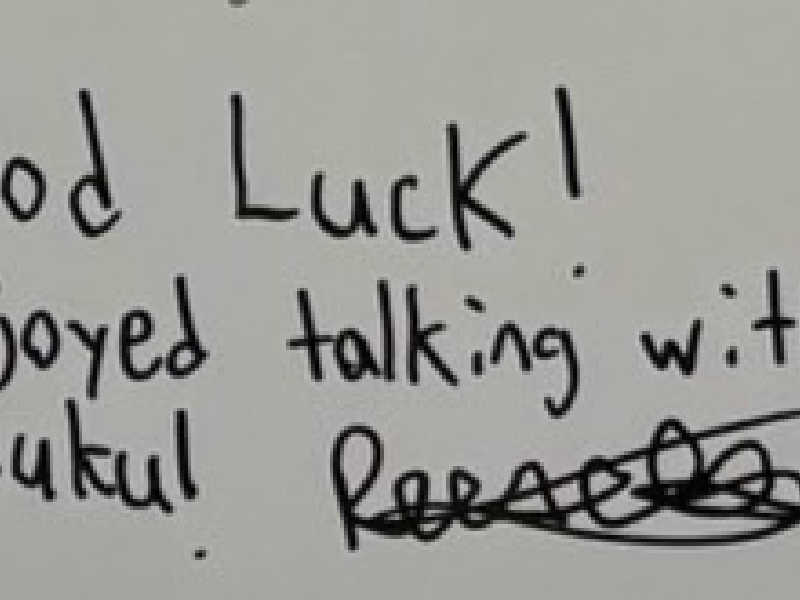 od Luck!
joyed talking wit
ukul